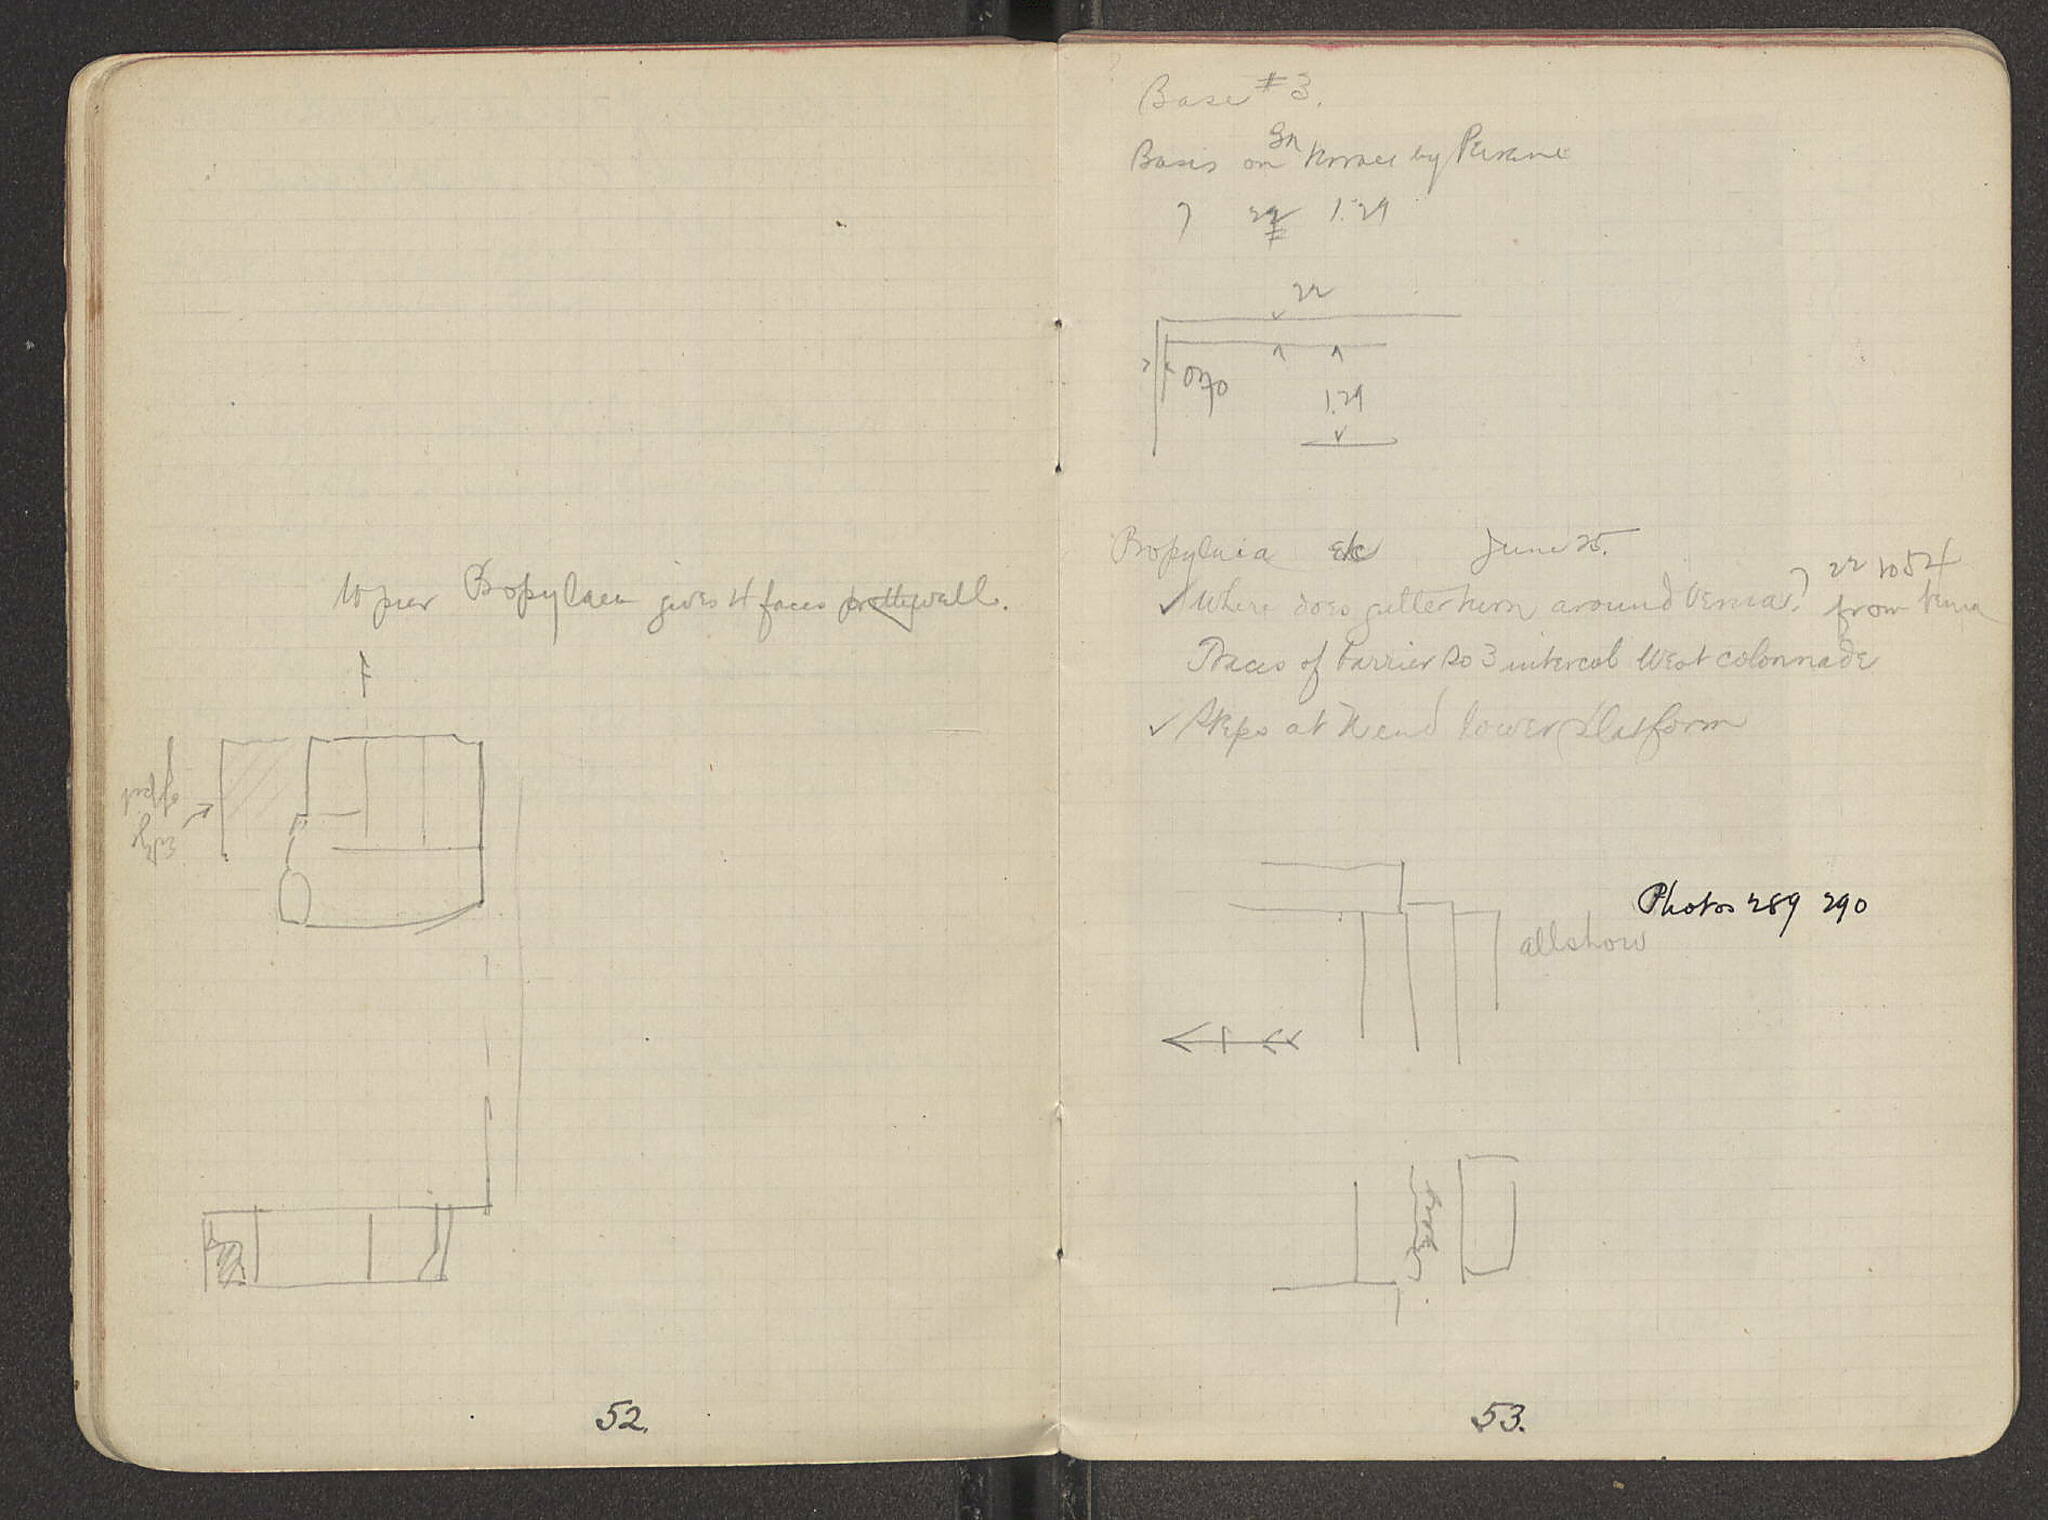 W pier Propylaea gives 4 faces pretty well.
edge
offset
52.
Base #3.
Basis on terrace by
? 22 1.29
22
1.29
Propylaea etc June 25.
✓ Where does gutter turn around Verria? 22 to 54
from
Traces of barrier to 3 intercol West colonnade
✓ Steps at N end lower platform
Photos 289 290
all show
53.